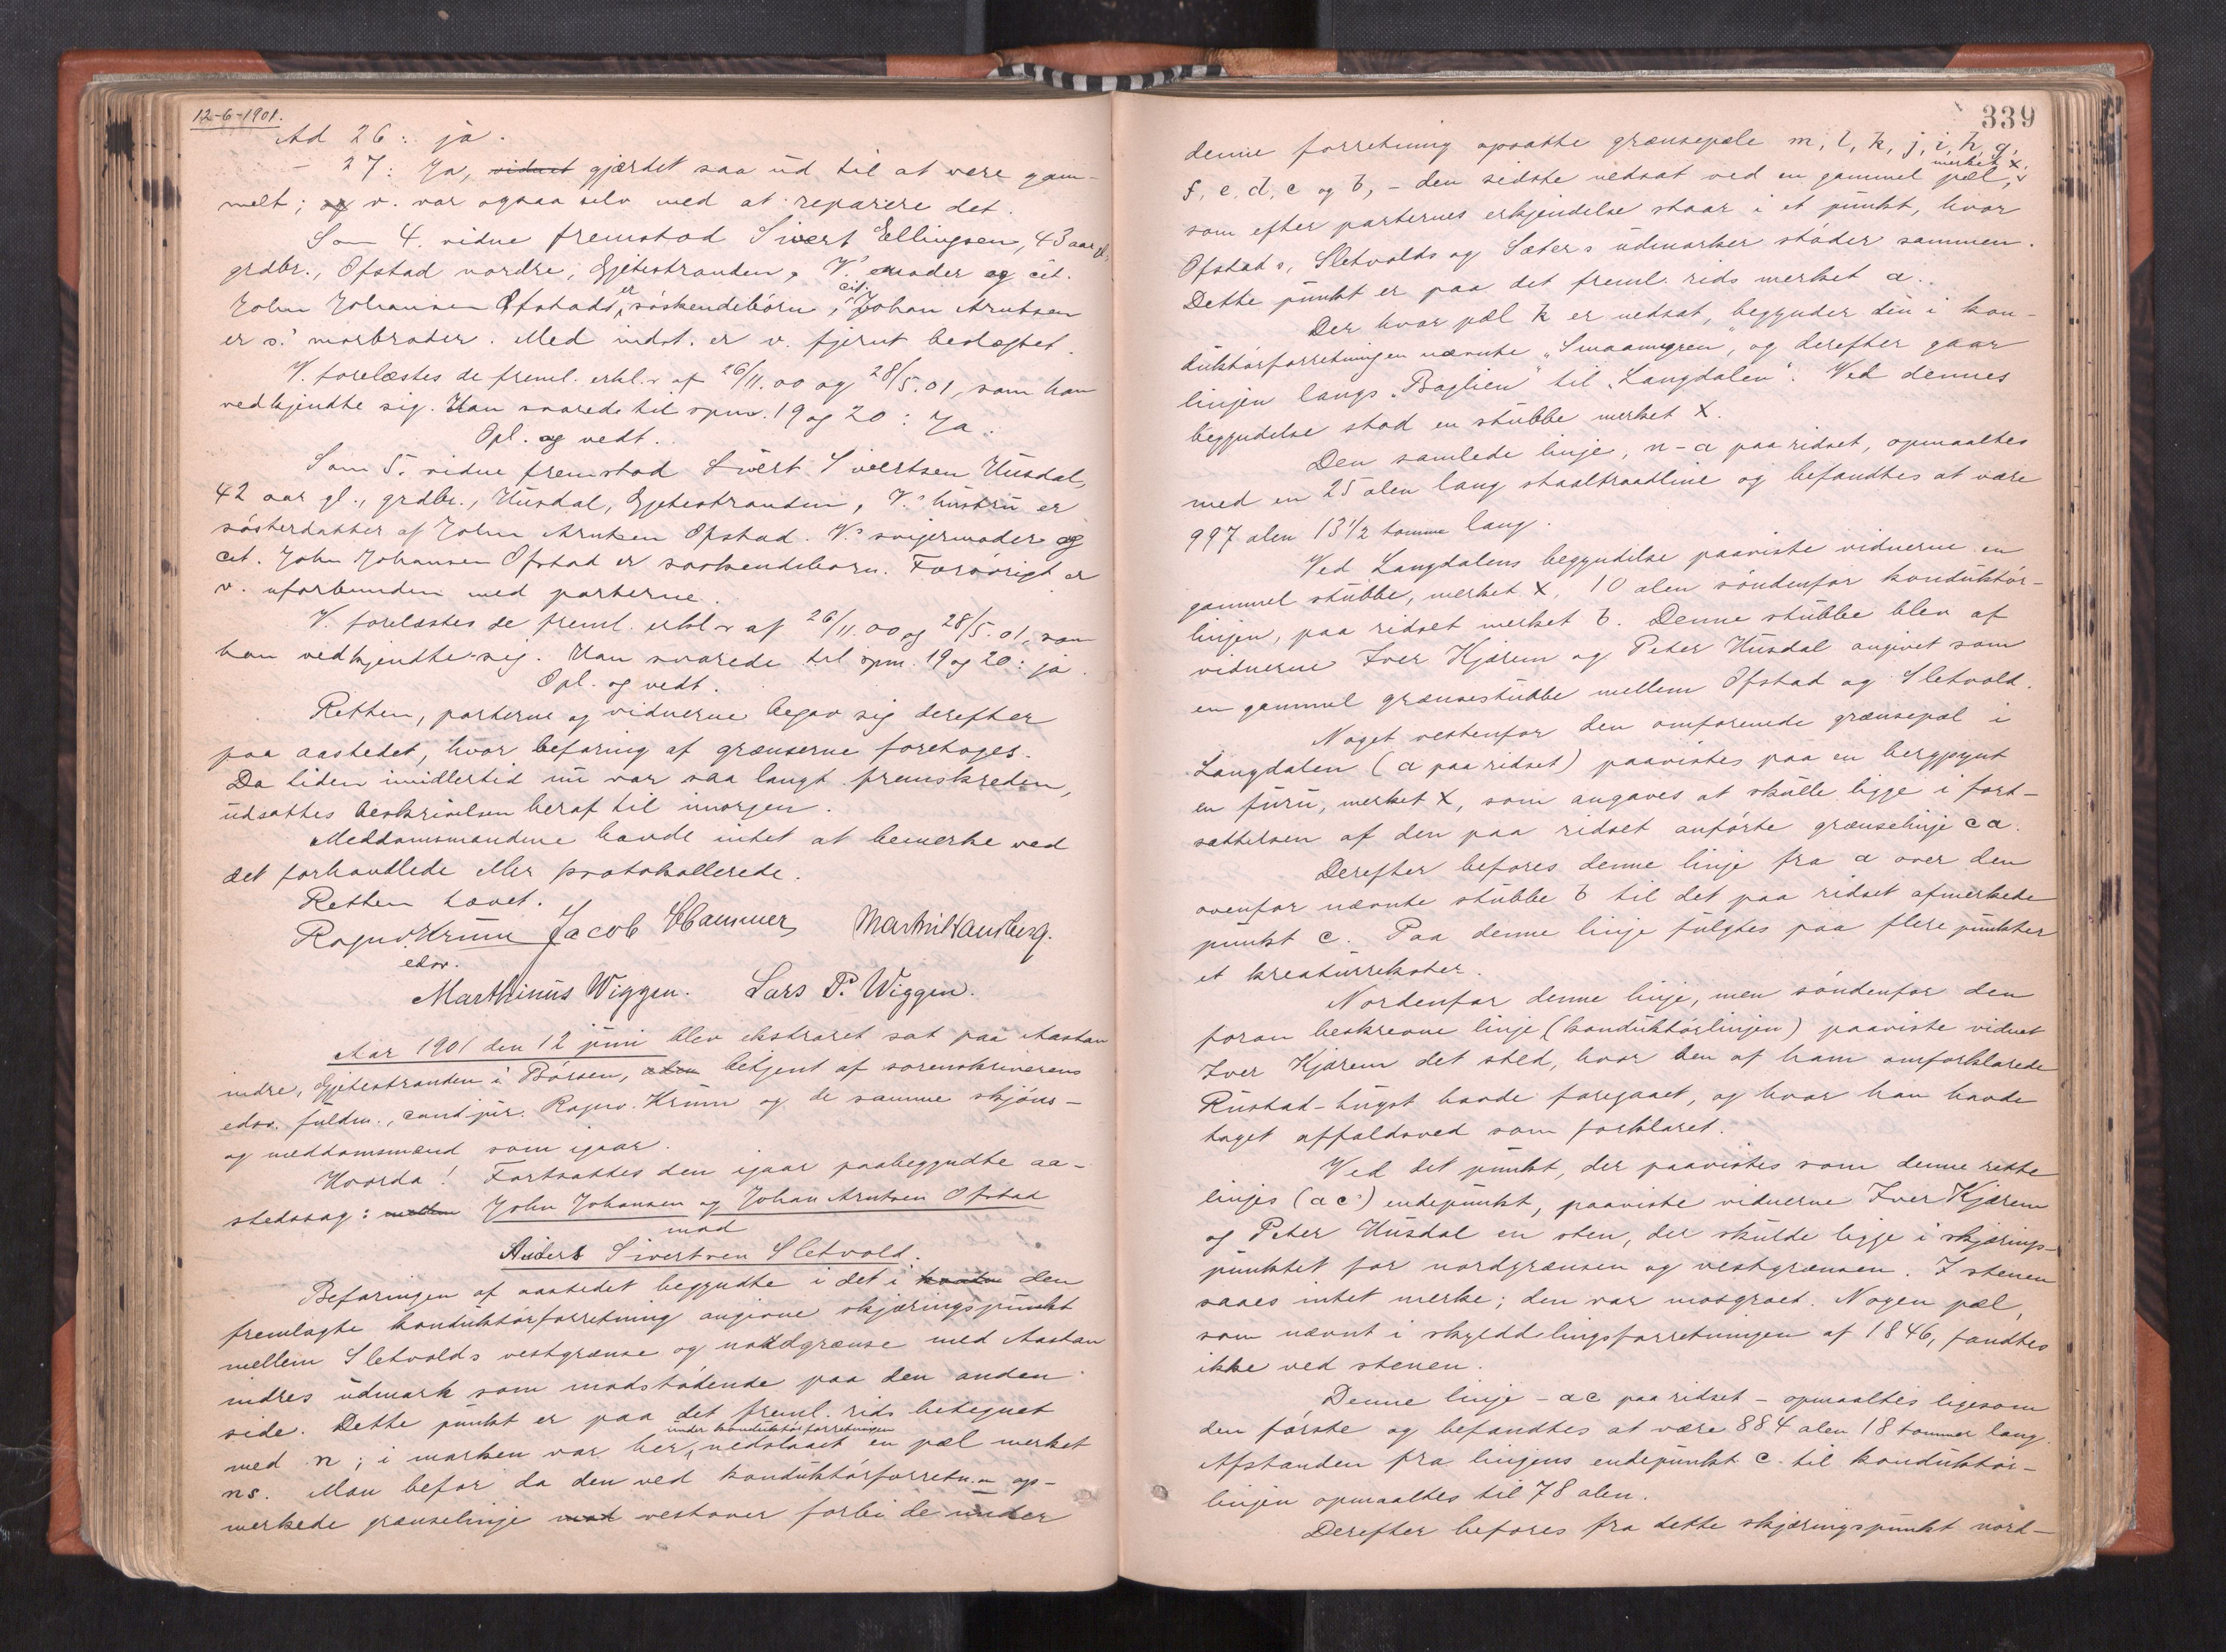 12-6-1901.
Ad 26: ja.
- 27: Ja, vidnet gjærdet saa ud til at være gam-
melt; og v. var ogsaa selv med at reparere det.
Som 4. vidne fremstod Sivert Ellingsen, 43 aar gl,
grdbr., Ofstad nordre, Gjetestranden, V.s moder og cit.
John Johansen Ofstads, er søskendebörn, cit. Johan Arntsen
er s.' morbroder. Med indst. er v. fjernt beslægtet.
V. forelæstes de freml. erkl.r af 26/11.00 og 28/5.01, som han
vedkjendte sig. Han svarede til spm. 19 og 20: Ja.
Opl. og vedt.
Som 5. vidne fremstod Sivert Sivertsen Husdal,
42 aar gl., grdbr., Husdal, Gjetestranden, V.s hustru er
sösterdatter af John Arntsen Ofstad. V.s svigermoder og
cit. John Johansen Ofstad er søskendebørn. Forövrigt er
v. uforbunden med parterne.
V. forelæstes de freml. erkl-r af 26/11.00 og 28/5.01, som
han vedkjendte sig. Han svarede til spm. 19 og 20: ja.
Opl. og vedt.
Retten, parterne og vidnerne begav sig derefter
paa aastedet, hvor befaring af grænserne foretoges.
Da tiden imidlertid nu var saa langt fremskreden,
udsattes beskrivelsen heraf til imorgen.
Meddomsmændene havde intet at bemerke ved
det forhandlede eller protokollerede.
Retten hævet.
Ragnv. Krum Jacob Hammer Martin Hansberg.
edsv.
Marthinus Wiggen. Lars P. Wiggen.
Aar 1901 den 12 juni blev ekstraret sat paa Aastan
indre, Gjetestranden i Börsen, betjent af sorenskriverens
edsv. fuldm., cand. jur. Ragnv. Krum og de samme skjöns-
og meddomsmænd som igaar.
Hvorda! Fortsattes den igaar paabegyndte aa-
stedssag: mellem John Johansen og Johan Arntsen Ofstad
mod
Anders Sivertsen Sletvold.
Befaringen af aastedet begyndte i det i den
fremlagte konduktörforretning angivne skjæringspunkt
mellem Sletvolds vestgrænse og nordgrænse med Aastan
indres udmark som modstödende paa den anden
side. Dette punkt er paa det freml. rids betegnet
med n; i marken var her, under konduktörforretningen nedslaaet en pæl merket
ns. Man befor da den ved konduktörforretn.n op-
merkede grænselinje mod vestover forbi de under
339
denne forretning opsatte grænsepæle m, l, k, j, i, h, g,
f, e, d, c og b, - den sidste nedsat ved en gammel pæl, merket x,
som efter parternes erkjendelse staar i et punkt, hvor
Ofstads, Sletvolds og Sæters udmarker stöder sammen.
Dette punkt er paa det freml. rids merket a.
Der hvor pæl k er nedsat, begynder den i kon-
duktörforretningen nævnte "Smaamyren", og derefter gaar
linjen langs "Baglien" til "Langdalen". Ved dennes
begyndelse stod en stubbe merket X.
Den samlede linje, n-a paa ridset, opmaaltes
med en 25 alen lang staaltraadline og befandtes at være
997 alen 13 1/2 tomme lang.
Ved Langdalens begyndelse paaviste vidnerne en
gammel stubbe, merket X, 10 alen söndenfor konduktör-
linjen, paa ridset merket b. Denne stubbe blev af
vidnerne Iver Kjærem og Peter Husdal angivet som
en gammel grænsestubbe mellem Ofstad og Sletvold.
Noget vestenfor den omforenede grænsepæl i
Langdalen (a paa ridset) paavistes paa en bergpynt
en furu, merket X, som angaves at skulle ligge i fort-
sættelsen af den paa ridset anförte grænselinje ca.
Derefter befores denne linje fra a over den
ovenfor nævnte stubbe b til det paa ridset afmerkede
punkt c. Paa denne linje fulgtes paa flere punkter
et kreaturrekster.
Nordenfor denne linje, men söndenfor den
foran beskrevne linje (konduktörlinjen) paaviste vidnet
Iver Kjærem det sted, hvor den af ham omforklarede
Rustad-hugst havde foregaaet, og hvor han havde
taget affaldsved som forklaret.
Ved det punkt, der paavistes som denne rette
linjes (ac') endepunkt, paaviste vidnerne Iver Kjærem
og Peter Husdal en sten, der skulde ligge i skjærings-
punktet for nordgrænsen og vestgrænsen. I stenen
saaes intet merke; den var mosgroet. Nogen pæl,
som nævnt i skylddelingsforretningen af 1846, fandtes
ikke ved stenen.
Denne linje - ac paa ridset - opmaaltes ligesom
den første og befandtes at være 884 alen 18 tommer lang.
Afstanden fra linjens endepunkt c til konduktör-
linjen opmaaltes til 78 alen.
Derefter befores fra dette skjæringspunkt nord-